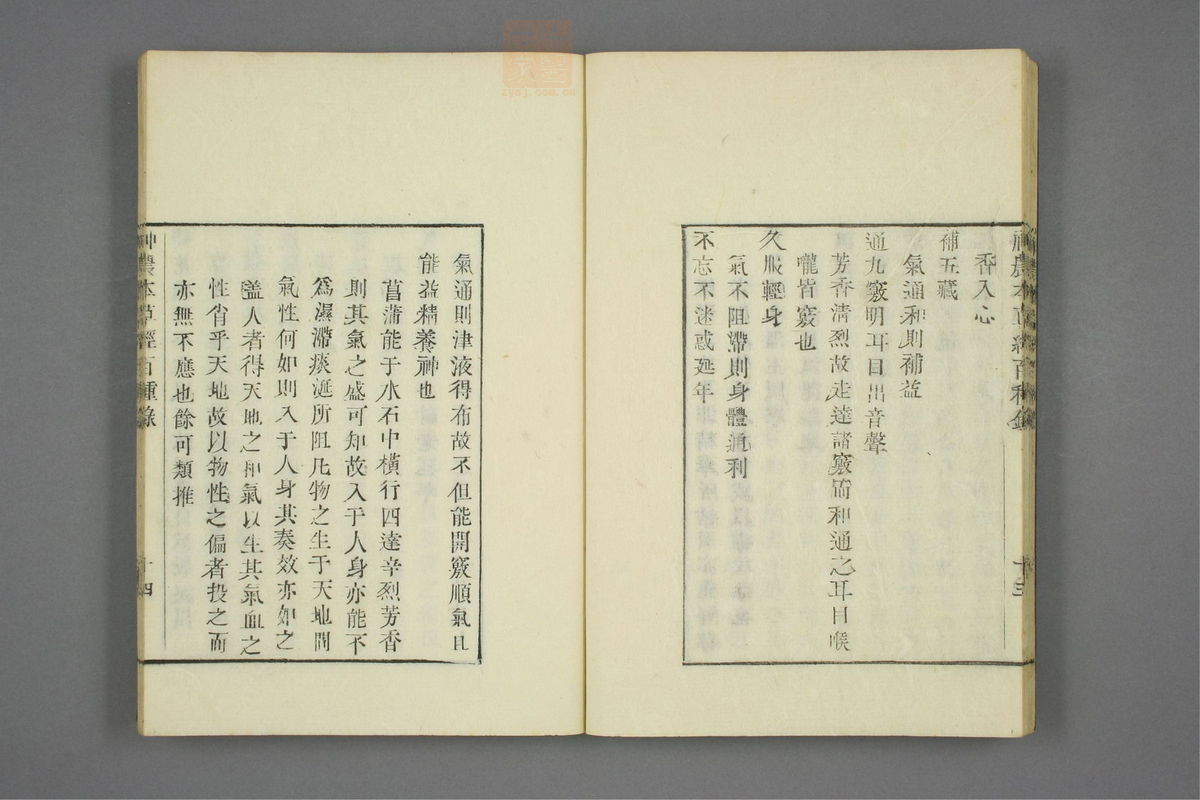 香入心
補五藏
氣通和則補益
通九竅明耳目出音聲
芳香清烈故走達諸竅而和通之耳目喉
嚨皆竅也
久服輕身
氣不阻滯則身體通利
不忘不迷惑延年
十三
氣通則津液得布故不但能開竅順氣且
能益精養神也
菖蒲能于水石中橫行四達辛烈芳香
則其氣之盛可知故入于人身亦能不
爲濕滯痰涎所阻凡物之生于天地間
氣性何如則入于人身其奏效亦如之
蓋人者得天地之和氣以生其氣血之
性肖乎天地故以物性之偏者投之而
亦無不應也餘可類推
神農本草經百種錄
十四
zysj.com.cn